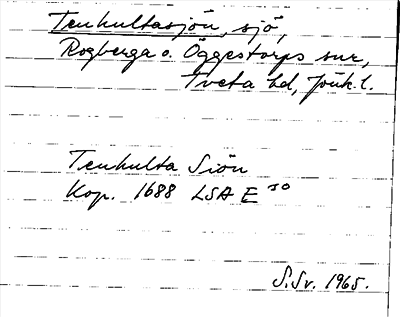 Tenhultasjön, sjö,
Rogberga o. Öggestorps snr,
Tveta hd, Jönk. l.
Tenhulta Siön
Kop. 1688 LSA E 50
S.Sv. 1965.